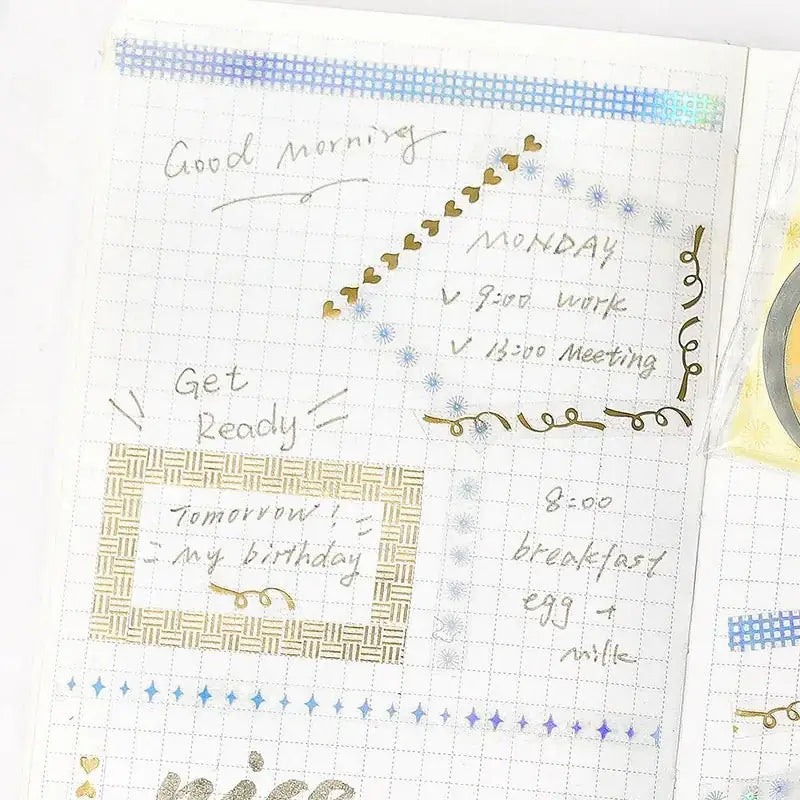 Good Morning
MONDAY
v 9:00 work
v 13:00 Meeting
Get
Ready
Tomorrow!
= my birthday =
8:00
breakfast
egg +
milk
nice